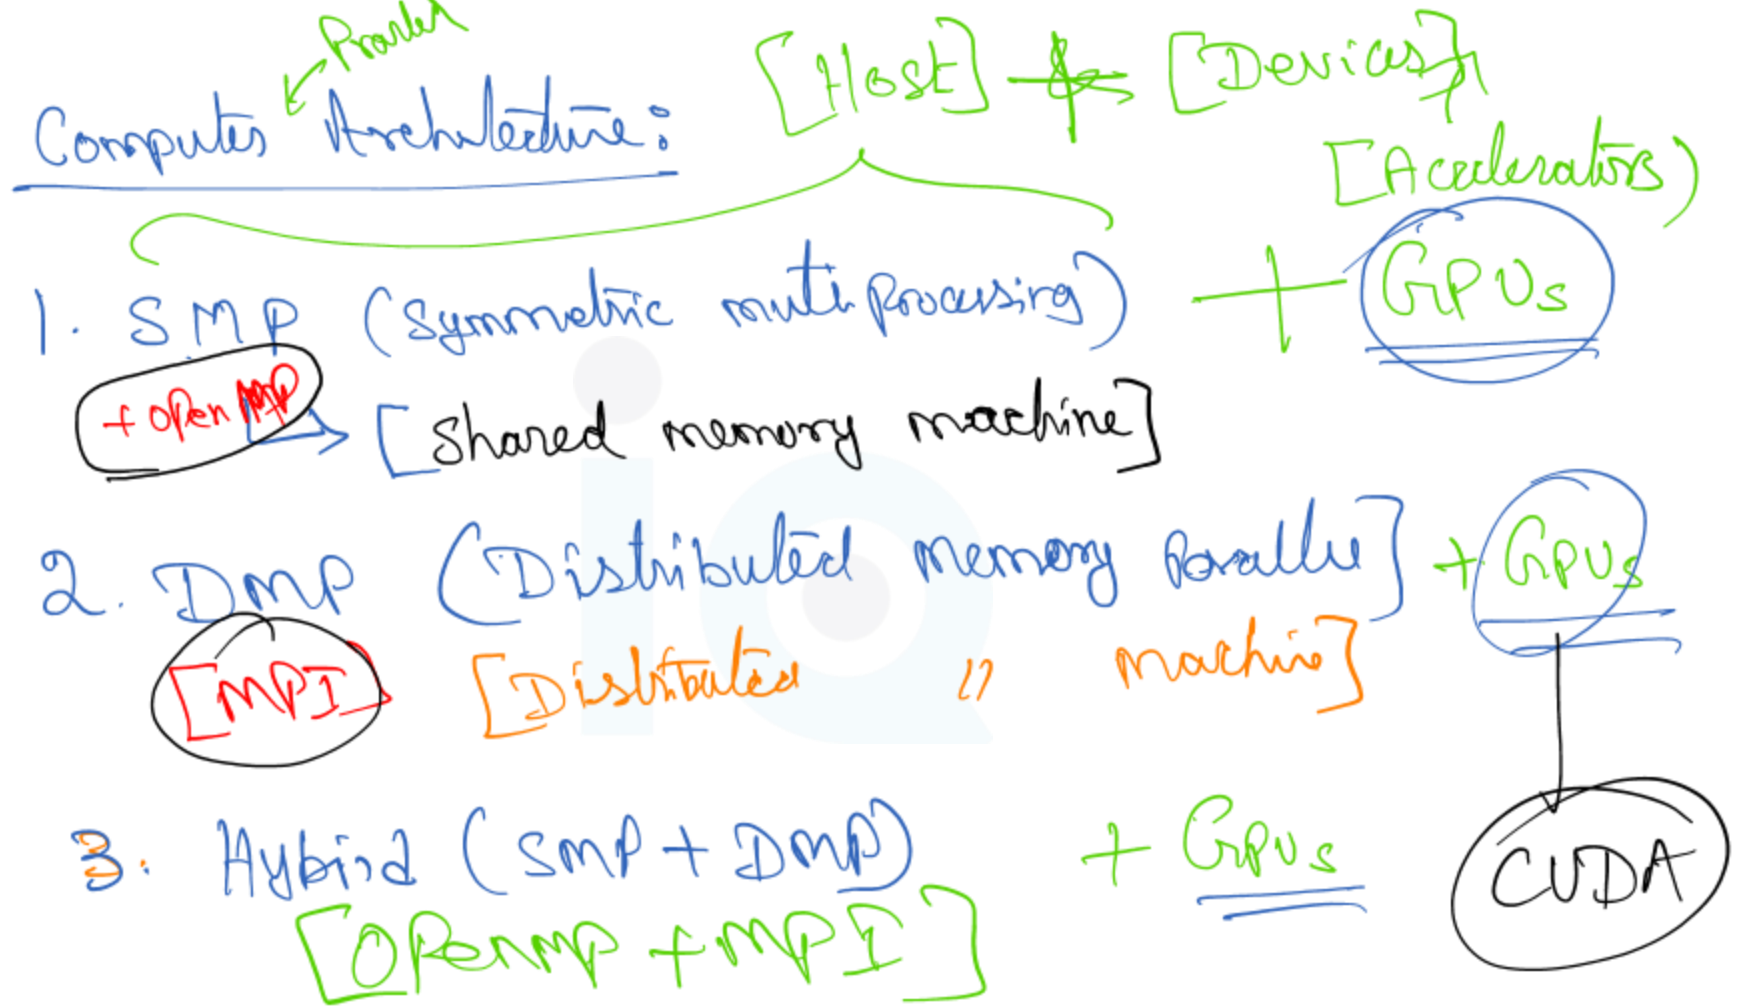 [Host] + [Devices]
Computer Architecture:
[Accelerators)
1. SMP (Symmetric multi Processing) + GPUs
+ open MP
[Shared memory machine]
2. DMP (Distributed memory Parallel] + GPUs
[MPI] [Distributed " machine]
3. Hybird (SMP + DMP) + GPUs
CUDA
[OPenMP + MPI]
iQ